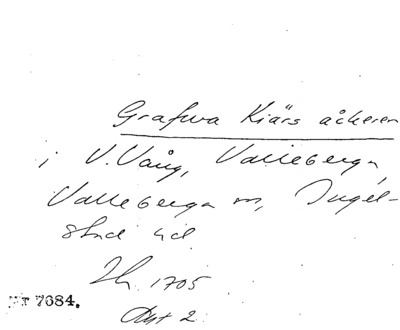 Grafwa Kiärs åckeren
i V. Vång, Valleberga,
Valleberga sn, Ingel-
stad hd.
Lh 1705
Nr 7684.
Akt 2